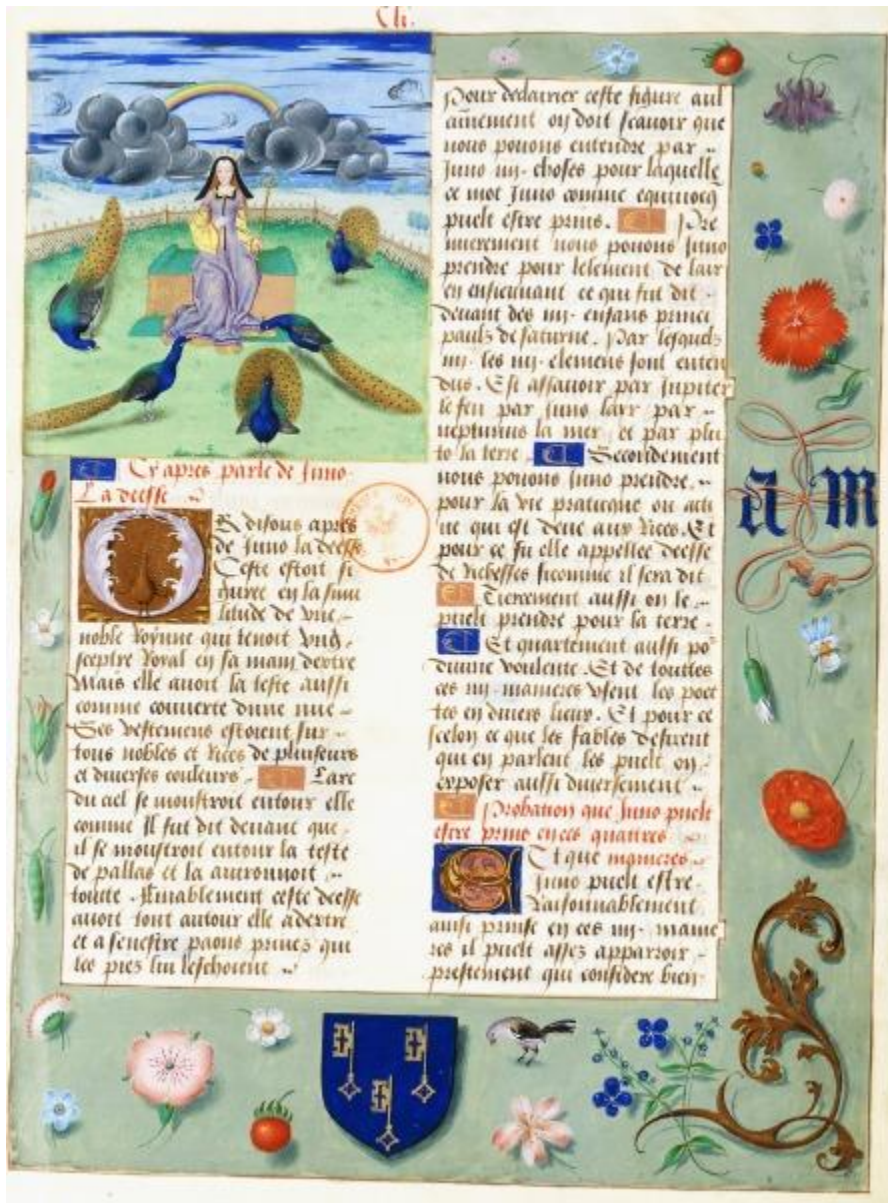 Cy apres parle de Juno
La deesse
Or disons apres
de Juno la deesse
Ceste estoit fi
guree en la simi
litude de vne
noble Royne qui tenoit vng
sceptre Royal en sa main dextre
Mais elle auoit la teste aussi
comme couuerte dune nue
Ses vestemens estoient sur
tous nobles et Rices de pluiseurs
et diuerses couleurs. Larc
du ciel se monstroit entour elle
comme Il fut dit deuant que
il se monstroit entour la teste
de pallas et la auironnoit
toute. Finablement ceste deesse
auoit tout autour elle a dextre
et a senestre paons priuez qui
les piez lui leschoient
Pour declairier ceste figure aul
cunement on doit scauoir que
nous pouons entendre par
Juno iiij. choses pour laquelle
ce mot Juno comme equiuocq
puelt estre prins. Pre
mierement nous pouons Juno
prendre pour lelement de lair
en ensieuuant ce qui fut dit
deuant des iiij. enfans princi
paulx de saturne. Par lesquels
iiij. les iiij. elemens sont enten
dus. Est assauoir par Jupiter
le feu par Juno lair par
neptunus la mer et par plu
to la terre. Secondement
nous pouons Juno prendre
pour la vie praticque ou acti
ue qui est deue aux Rices. Et
pour ce fu elle appellee deesse
de Richesses sicomme il sera dit
Tiercement aussi on le
puelt prendre pour la terre
Et quartement aussi por
diuine voulente. Et de touttes
ces iiij. manieres vsent les poet
tes en diuers lieux. Et pour ce
scelon ce que les fables desirent
qui en parlent les puelt on
exposer aussi diuersement
Probation que Juno puelt
estre prinse en ces quattres
manieres
Et que
Juno puelt estre
Raisonnablement
ainsi prinse en ces iiij. manie
res il puelt assez apparroir
prestement qui considere bien
a M